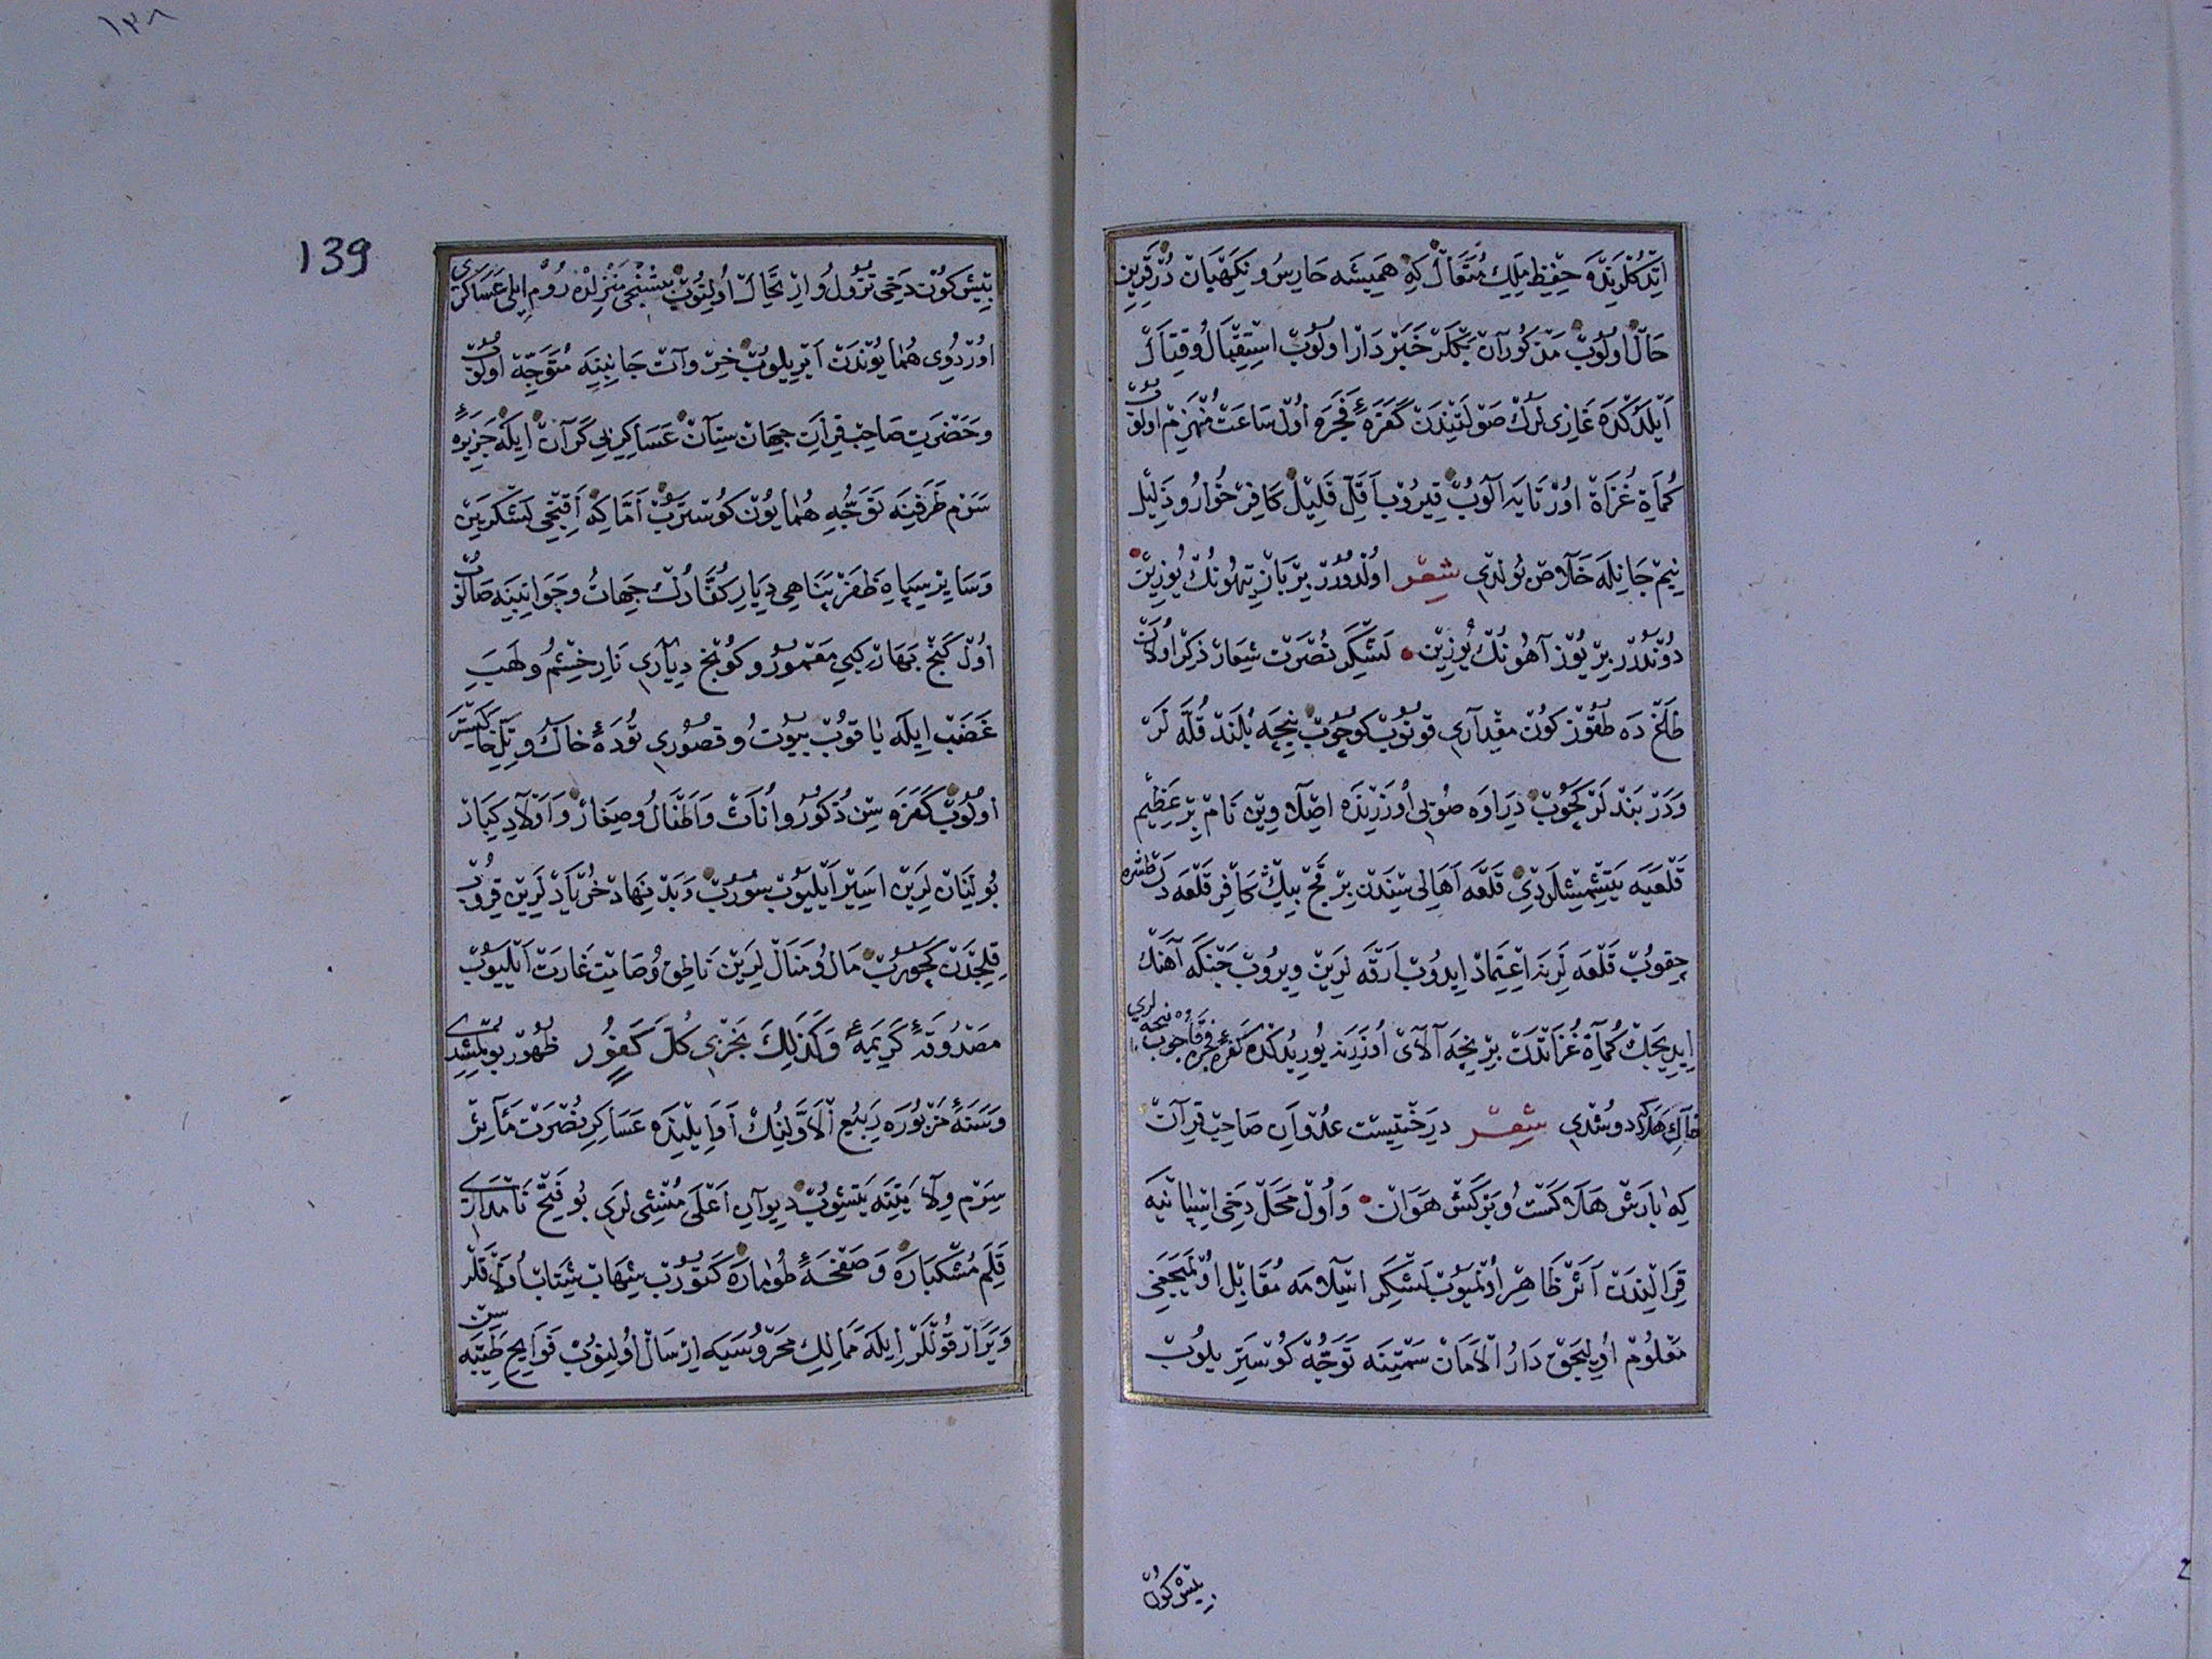 ایتدکلرنده حفیظ ملک متعال که همیشه حارس و نکهبان در قرین
حال اولوب مذکور آن بکلر خبردار اولوب استقبال و قتال
ایلدکده غازیلرک صولتندن کفرهٔ فجره اول ساعت منهزم اولوب
کماة غزاة اورتایه الوب قیروب اقل قلیل کافر خوار و ذلیل
نیم جانله خلاص بولدی شعر اولدورر بر یوزین
دوندرر بر یوز آهونک یوزین لشکر نصرت شعار ذکر اولان
ده طقوز کون مقداری قونوب کوچوب نیجه بلند قله لر
و دربندلر کچوب دراوه صویی اوزرنده نام بر عظیم
قلعه یه یتشمشلردی قلعه اهالیسندن بر قچ بیک کافر قلعه دن طشره
چقوب قلعه لرینه اعتماد ایدوب ارقه لرین ویروب جنکه آهنک
ایدیجک کماة غزاتدن بر نیجه آلای اوزرینه یوریدکده کفرهٔ فجره نیجه لری
خاک هلاکه دوشدی شعر درختیست عدوان صاحبقران
که بارش هلاکست و برکش هوان و اول محل دخی
قرالندن اثر ظاهر اولمیوب لشکر اسلامه مقابل اولمیجغی
معلوم اولیجق دار الامان سمتینه توجه کوستریلوب
یتیش کون
139
۱۳۸
یتیش کون دخی نزول و ارتحال اولنوب بشنجی منزلده روم ایلی عساکری
اوردوی همایوندن ایریلوب خروات جانبینه متوجه اولوب
و حضرت صاحبقران جهان ستان عساکر بی کران ایله جزیرهٔ
سرم طرفینه توجه همایون کوستروب اما که اقنجی لشکرین
و سایر سپاه ظفر پناهی دیار کفارک جهات و جوانبینه صالوب
اول کنج بهار کبی معمور و کونج دیاری نار خشم و لهب
غضب ایله یاقوب بیوت و قصوری تودهٔ خاک و تل خاکستر
اولوب کفره سن ذکور و اناث و اطفال و صغار و اولاد کبار
بولنانلرین اسیر ایلیوب سوروب و بد نهاد خربادلرین قیروب
قلجدن کچوروب مال و منال لرین ناطق و صامت غارت ایلیوب
مصدوقهٔ کریمهٔ وکذلک نجزی کل کفور ظهور بولمشدی
و سنهٔ مزبوره ربیع الاولینک اوایلینده عساکر نصرت مآثر
سرم ولایتینه یتشوب دیوان اعلی منشی لری بو فتح نامداری
قلم مشکباره و صفحهٔ طوماره کتوروب شهاب شتاب اولاقلر
و یرار قوللر ایله ممالک محروسیه ارسال اولنوب فوایح طیبه سن